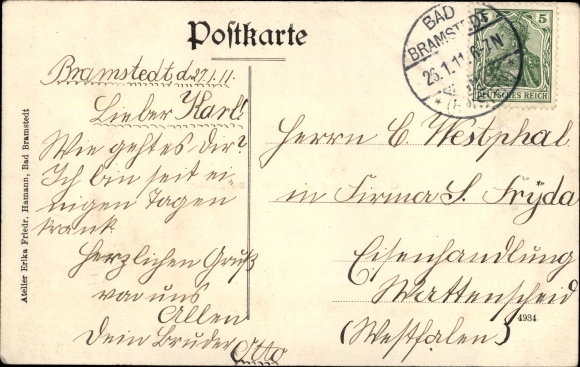 Postkarte
Bramstedt d. 27.1.11.
Lieber Karl!
Wie geht es Dir?
Ich bin seit ei-
nigen Tagen
krank
Herzlichen Gruß
von uns
Allen
Dein Bruder Otto
BAD
BRAMSTEDT
26.1.11. 6-7 N
5
DEUTSCHES REICH
Herrn C Westphal
in Firma S. Fryda
Eisenhandlung
Wattenscheid
(Westfalen)
4934
Atelier Erika Friedr. Hamann, Bad Bramstedt